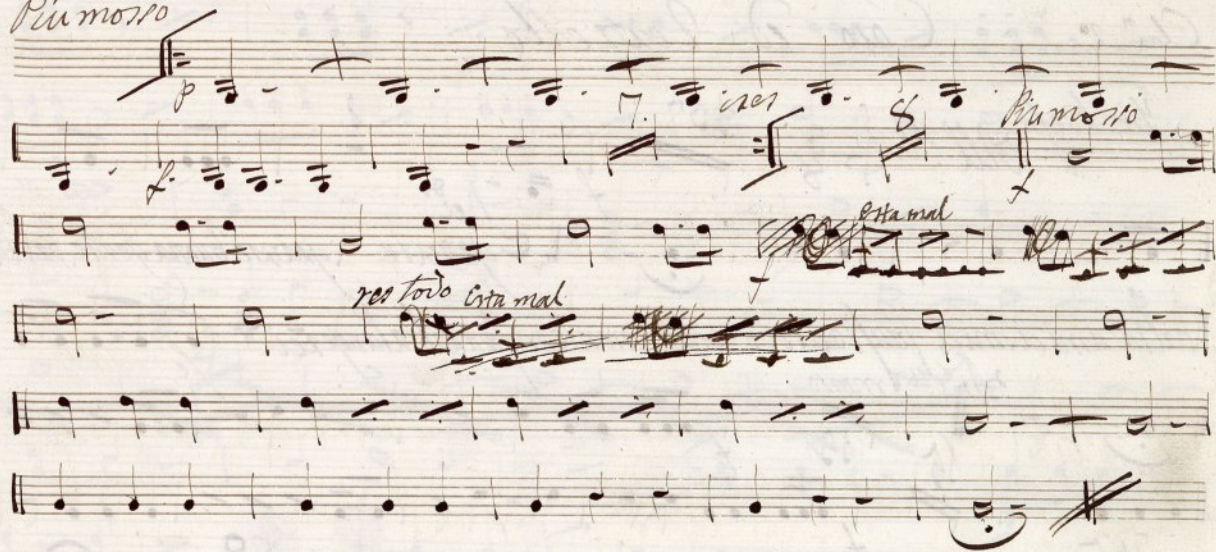 Piu mosso
p cres
7. 8 Piu mosso
f. f
Esta mal
f
res todo Esta mal